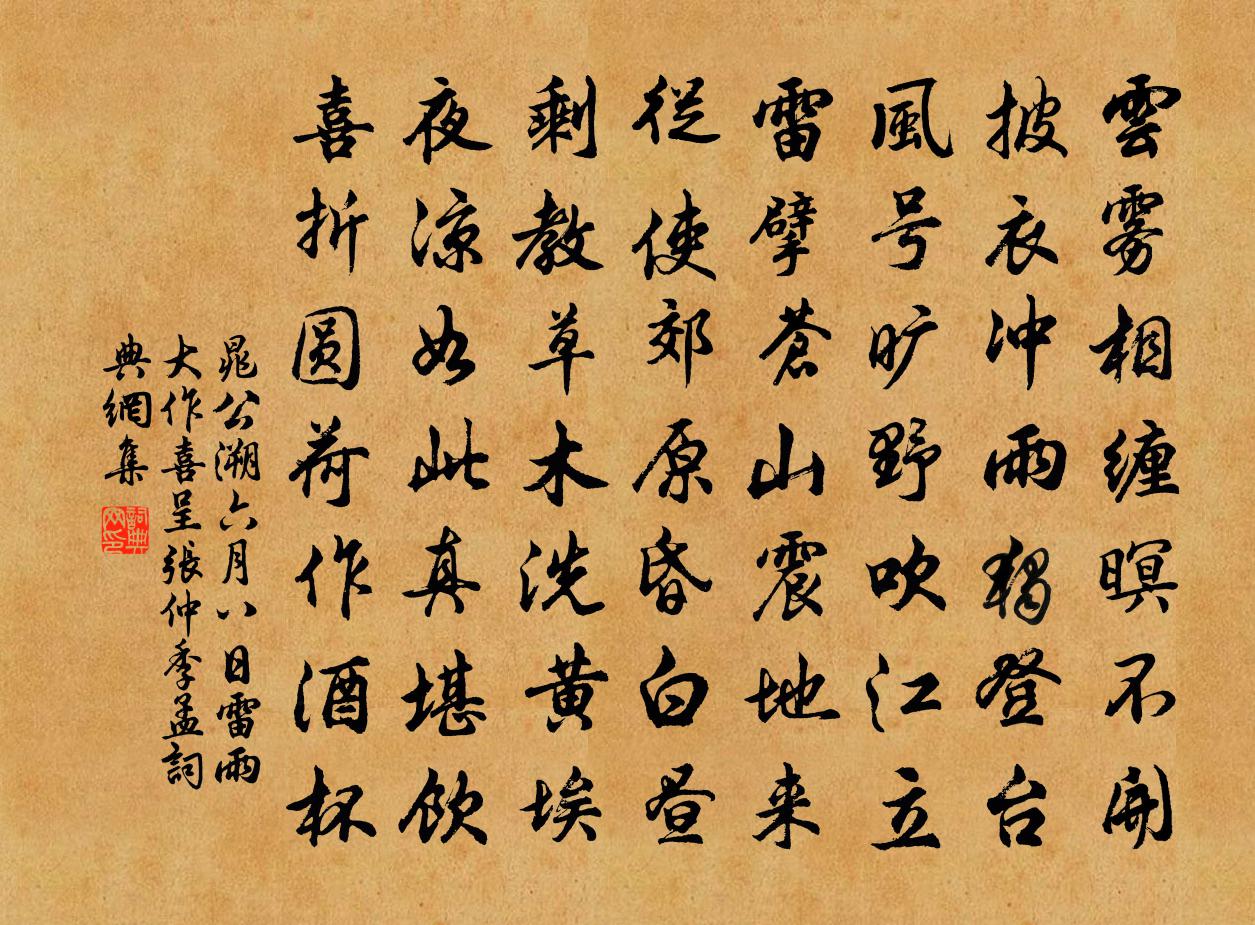 雲雾相缠暝不開
披衣冲雨独登台
風号旷野吹江立
雷擘蒼山震地来
從使郊原昏白昼
剩教草木洗黄埃
夜凉如此真堪饮
喜折圆荷作酒杯
晁公溯六月八日雷雨
大作喜呈張仲季孟詞
典網集
詞典网印